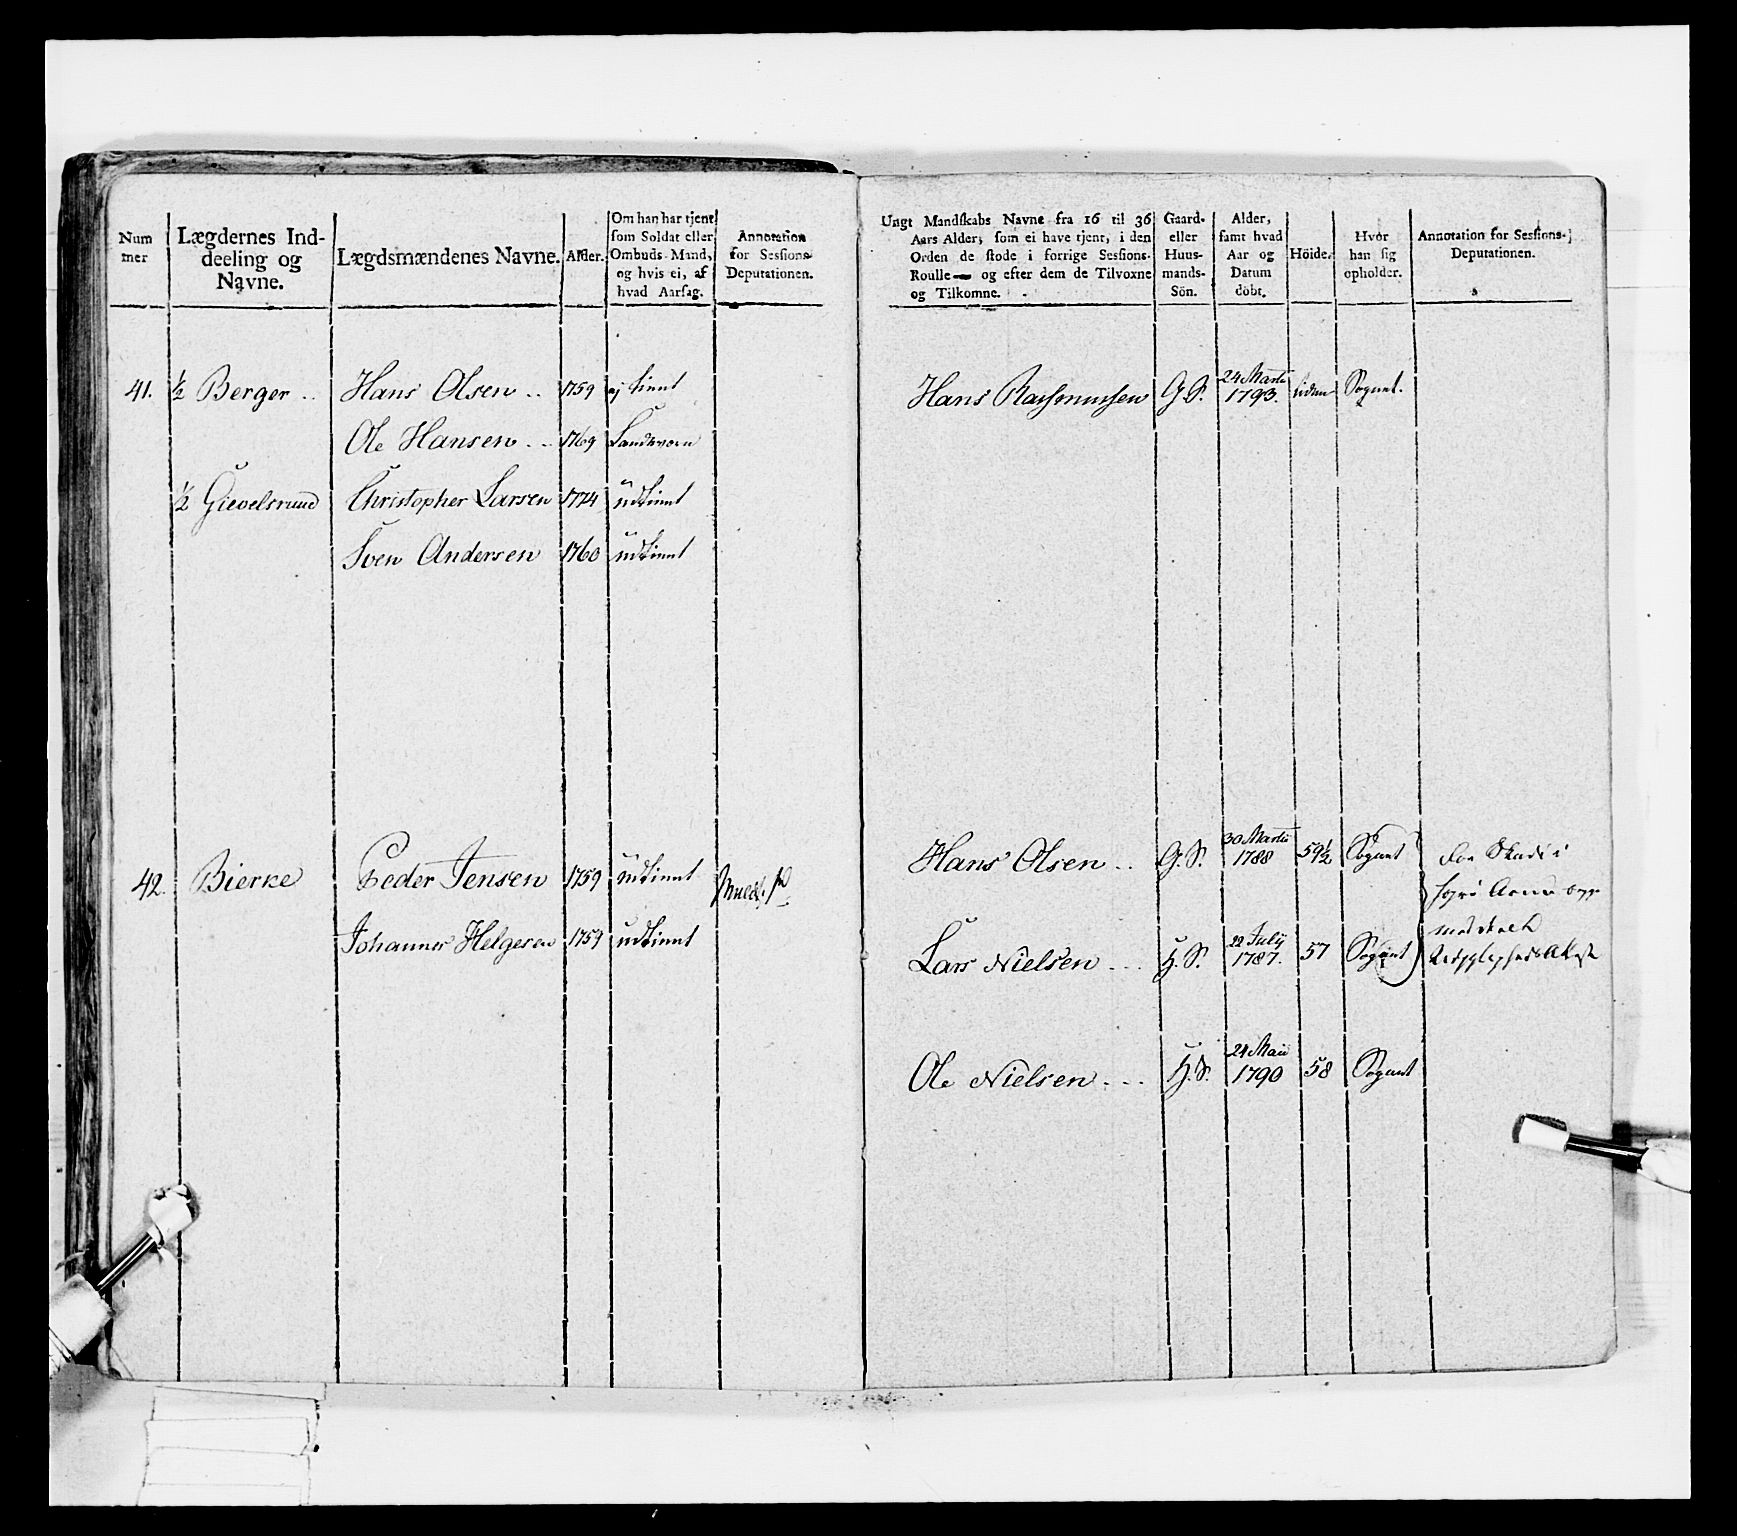 Num mer
Lægdernes Ind-
deeling og
Navne.
Lægdsmændenes Navne.
Alder.
Om han har tjent
som Soldat eller
Ombuds-Mand,
og hvis ei, af
hvad Aarsag.
Annotation
for Sessions-
Deputationen.
Ungt Mandskabs Navne fra 16 til 36
Aars Alder, som ei have tjent, i den
Orden de stode i forrige Sessions-
Roulle — og efter dem de Tilvoxne
og Tilkomne.
Gaard-
eller
Huus-
mands-
Sön.
Alder,
samt hvad
Aar og
Datum
döbt.
Höide.
Hvor
han sig
opholder.
Annotation for Sessions-
Deputationen.
41. ½ Berger .. Hans Olsen .. 1759 ej tient
Ole Hansen .. 1769 Landværn
½ Gievelsrund Christopher Larsen 1774 udtient
Sven Andersen 1760 udtient
42. Bierke Peder Jensen 1759 udtient
Johannes Helgesen 1759 udtient
Hans Rasmussen G.S. 24 Martii 1793. liden Sognet.
Hans Olsen .. G.S. 30 Martii 1788 59½ Sognet
Lars Nielsen ... H.S. 22 July 1787. 57 Sognet
Ole Nielsen ... H.S. 24 Maii 1790 58 Sognet